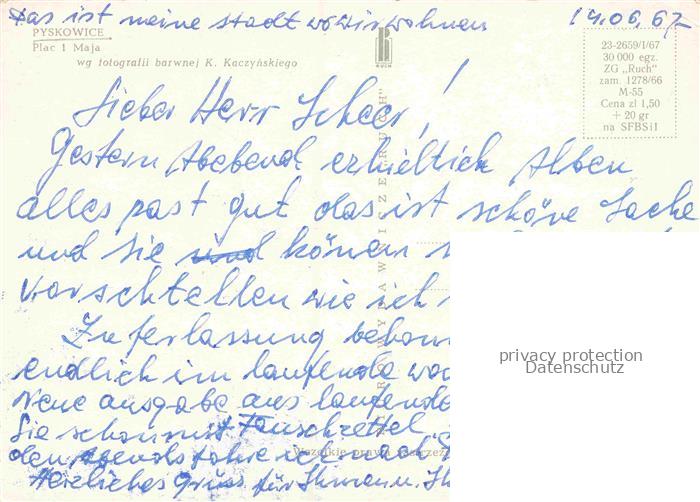 Das ist meine stadt wo wir wohnen 14.06.67
PYSKOWICE
Plac 1 Maja
wg fotografii barwnej K. Kaczyńskiego
RUCH
23-2659/I/67
30 000 egz.
ZG „Ruch"
zam. 1278/66
M-55
Cena zł 1,50
+ 20 gr
na SFBSiI
Lieber Herr Scheer!
Gestern Abebend erhieltich Alben
alles past gut das ist schöne Sache
und Sie können
vorschtellen wie ich
Zuferlassung
endlich im laufende
neue ausgabe aus laufende
Sie schon mit
den
Herzliches Grüss für Ihnen u.
privacy protection
Datenschutz